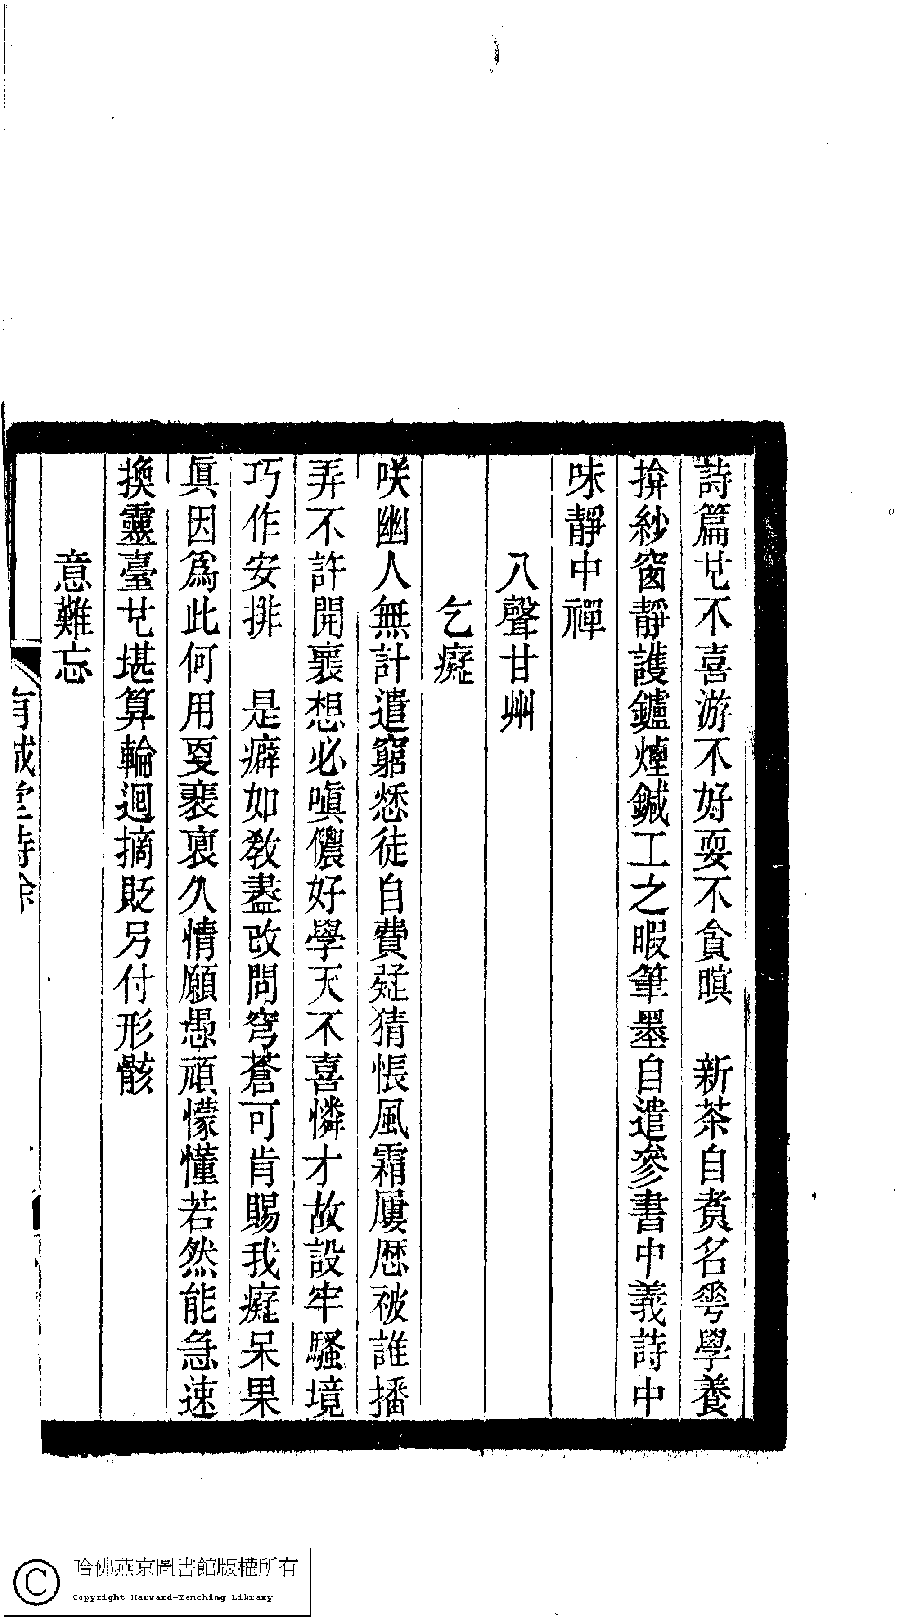 詩篇也不喜游不好耍不貪瞋　新茶自煑名蕚學養
揜紗窗靜護鑪煙鍼工之暇筆墨自遣參書中義詩中
味靜中禪
八聲甘州
乞癡
咲幽人無計遣窮愁徒自費疑猜悵風霜屢歷被誰播
弄不許開襄想必嗔儂好學天不喜憐才故設牢騷境
巧作安排　是癖如教盡改問穹蒼可肯賜我癡呆果
眞因爲此何用戛裵裒久情願愚頑懞懂若然能急速
換靈臺也堪算輪迴摘貶另付形骸
意難忘
有誠堂詩餘
哈佛燕京圖書館版權所有
Copyright Harvard-Yenching Library